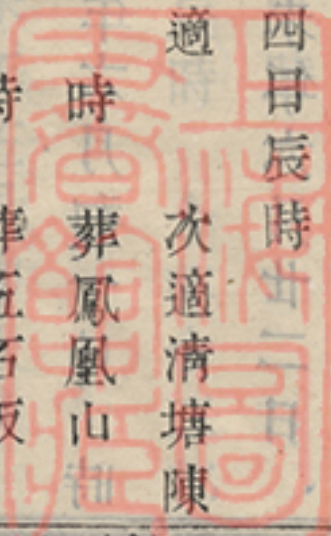 四日辰時
適　次適清塘陳
時　葬鳳凰山
時　葬五石坂